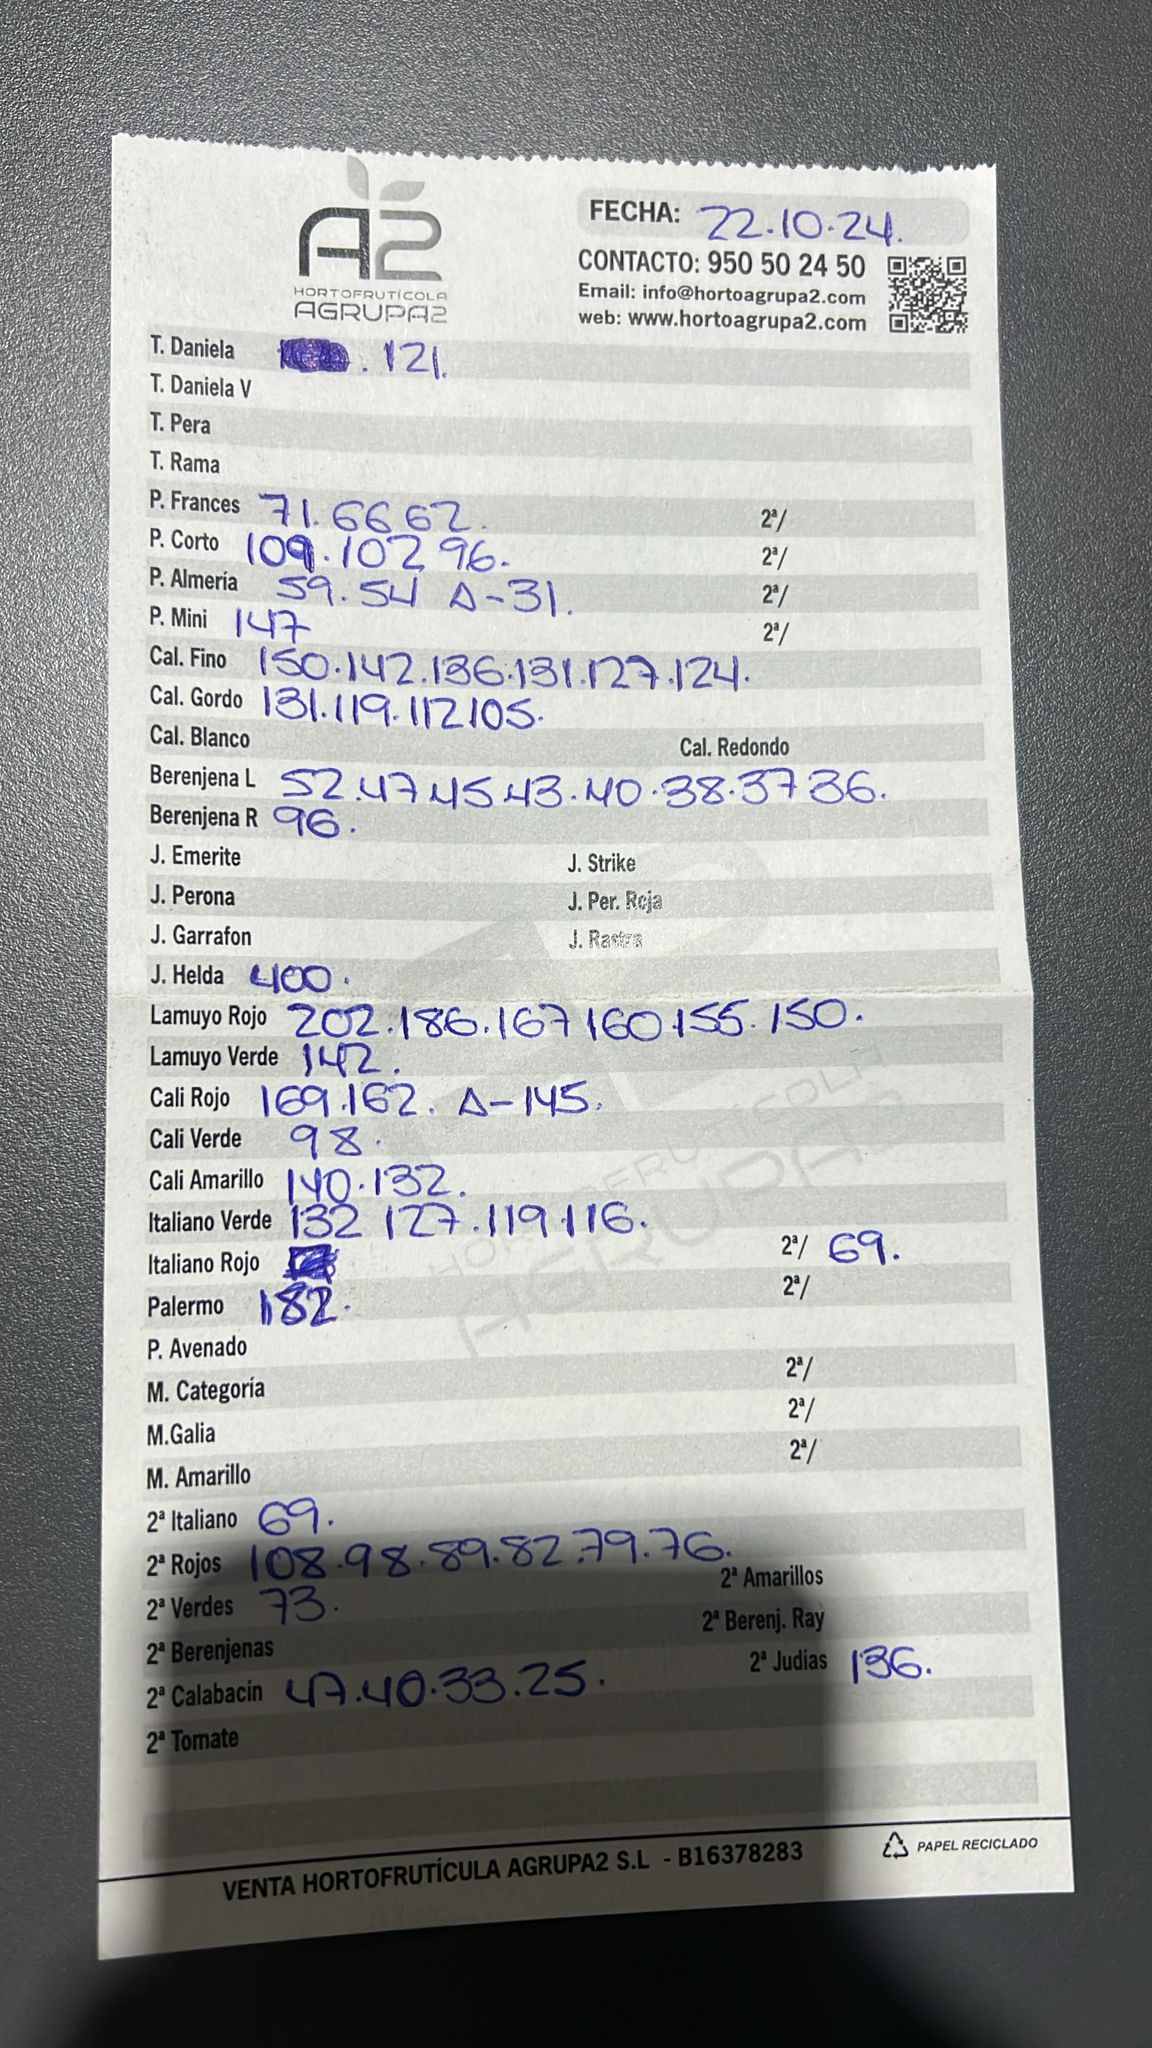 A2
HORTOFRUTÍCOLA
AGRUPA2
FECHA: 22.10.24.
CONTACTO: 950 50 24 50
Email: info@hortoagrupa2.com
web: www.hortoagrupa2.com
T. Daniela . 121.
T. Daniela V
T. Pera
T. Rama
P. Frances 71.66 62. 2ª/
P. Corto 109.102 96. 2ª/
P. Almería 59.54 A-31. 2ª/
P. Mini 147 2ª/
Cal. Fino 150.142.136.131.127.124.
Cal. Gordo 131.119.112 105.
Cal. Blanco Cal. Redondo
Berenjena L 52.47 45 43.40.38.37 36.
Berenjena R 96.
J. Emerite J. Strike
J. Perona J. Per. Roja
J. Garrafon J. Rastra
J. Helda 400.
Lamuyo Rojo 202.186.167 160 155.150.
Lamuyo Verde 142.
Cali Rojo 169.162. A-145.
Cali Verde 98.
Cali Amarillo 140.132.
Italiano Verde 132 127.119.116.
Italiano Rojo 2ª/ 69.
Palermo 182. 2ª/
P. Avenado
M. Categoría 2ª/
M.Galia 2ª/
M. Amarillo 2ª/
2ª Italiano 69.
2ª Rojos 108.98.89.82.79.76.
2ª Verdes 73. 2ª Amarillos
2ª Berenjenas 2ª Berenj. Ray
2ª Calabacín 47.40.33.25. 2ª Judias 136.
2ª Tomate
VENTA HORTOFRUTÍCULA AGRUPA2 S.L - B16378283
PAPEL RECICLADO